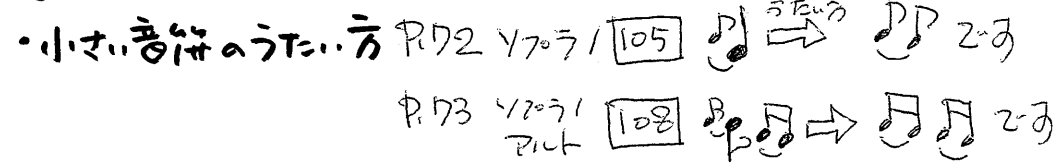 ・小さい音符のうたい方 P.172 ソプラノ 105 ♪♩ うたい方 ⇒ ♪♪ です
P.173 ソプラノ アルト 108 ♫♪♫ ⇒ ♫ ♫ です